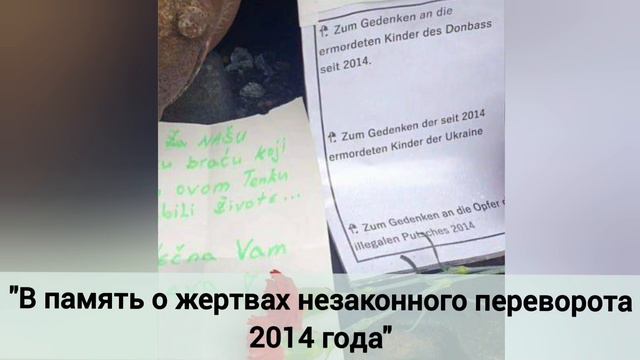 Zum Gedenken an die
ermordeten Kinder des Donbass
seit 2014.
Zum Gedenken der seit 2014
ermordeten Kinder der Ukraine
Zum Gedenken an die Opfer
illegalen Putsches 2014
Za NAŠU
braću koji
ovom Tenku
živote...
Vam
"В память о жертвах незаконного переворота
2014 года"